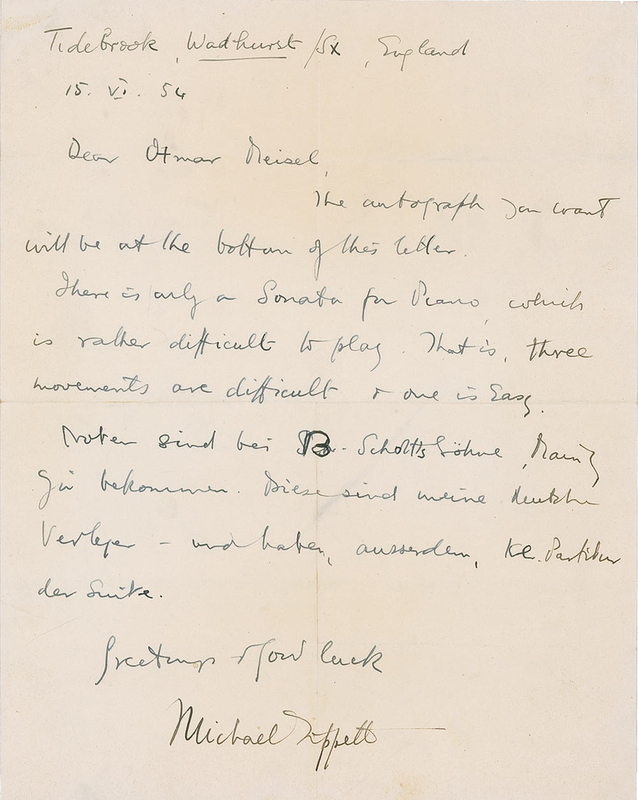 Tidebrook, Wadhurst/Sx, England
15. VI. 54
Dear Otmar Meisel,
The autograph you want
will be at the bottom of this letter.
There is only a Sonata for Piano, which
is rather difficult to play. That is, three
movements are difficult & one is Easy.
Noten sind bei B. Schotts Söhne, Mainz
zu bekommen. Diese sind meine deutsche
Verleger – und haben, ausserdem, Kl. Partitur
der Suite.
Greetings & good luck
Michael Tippett